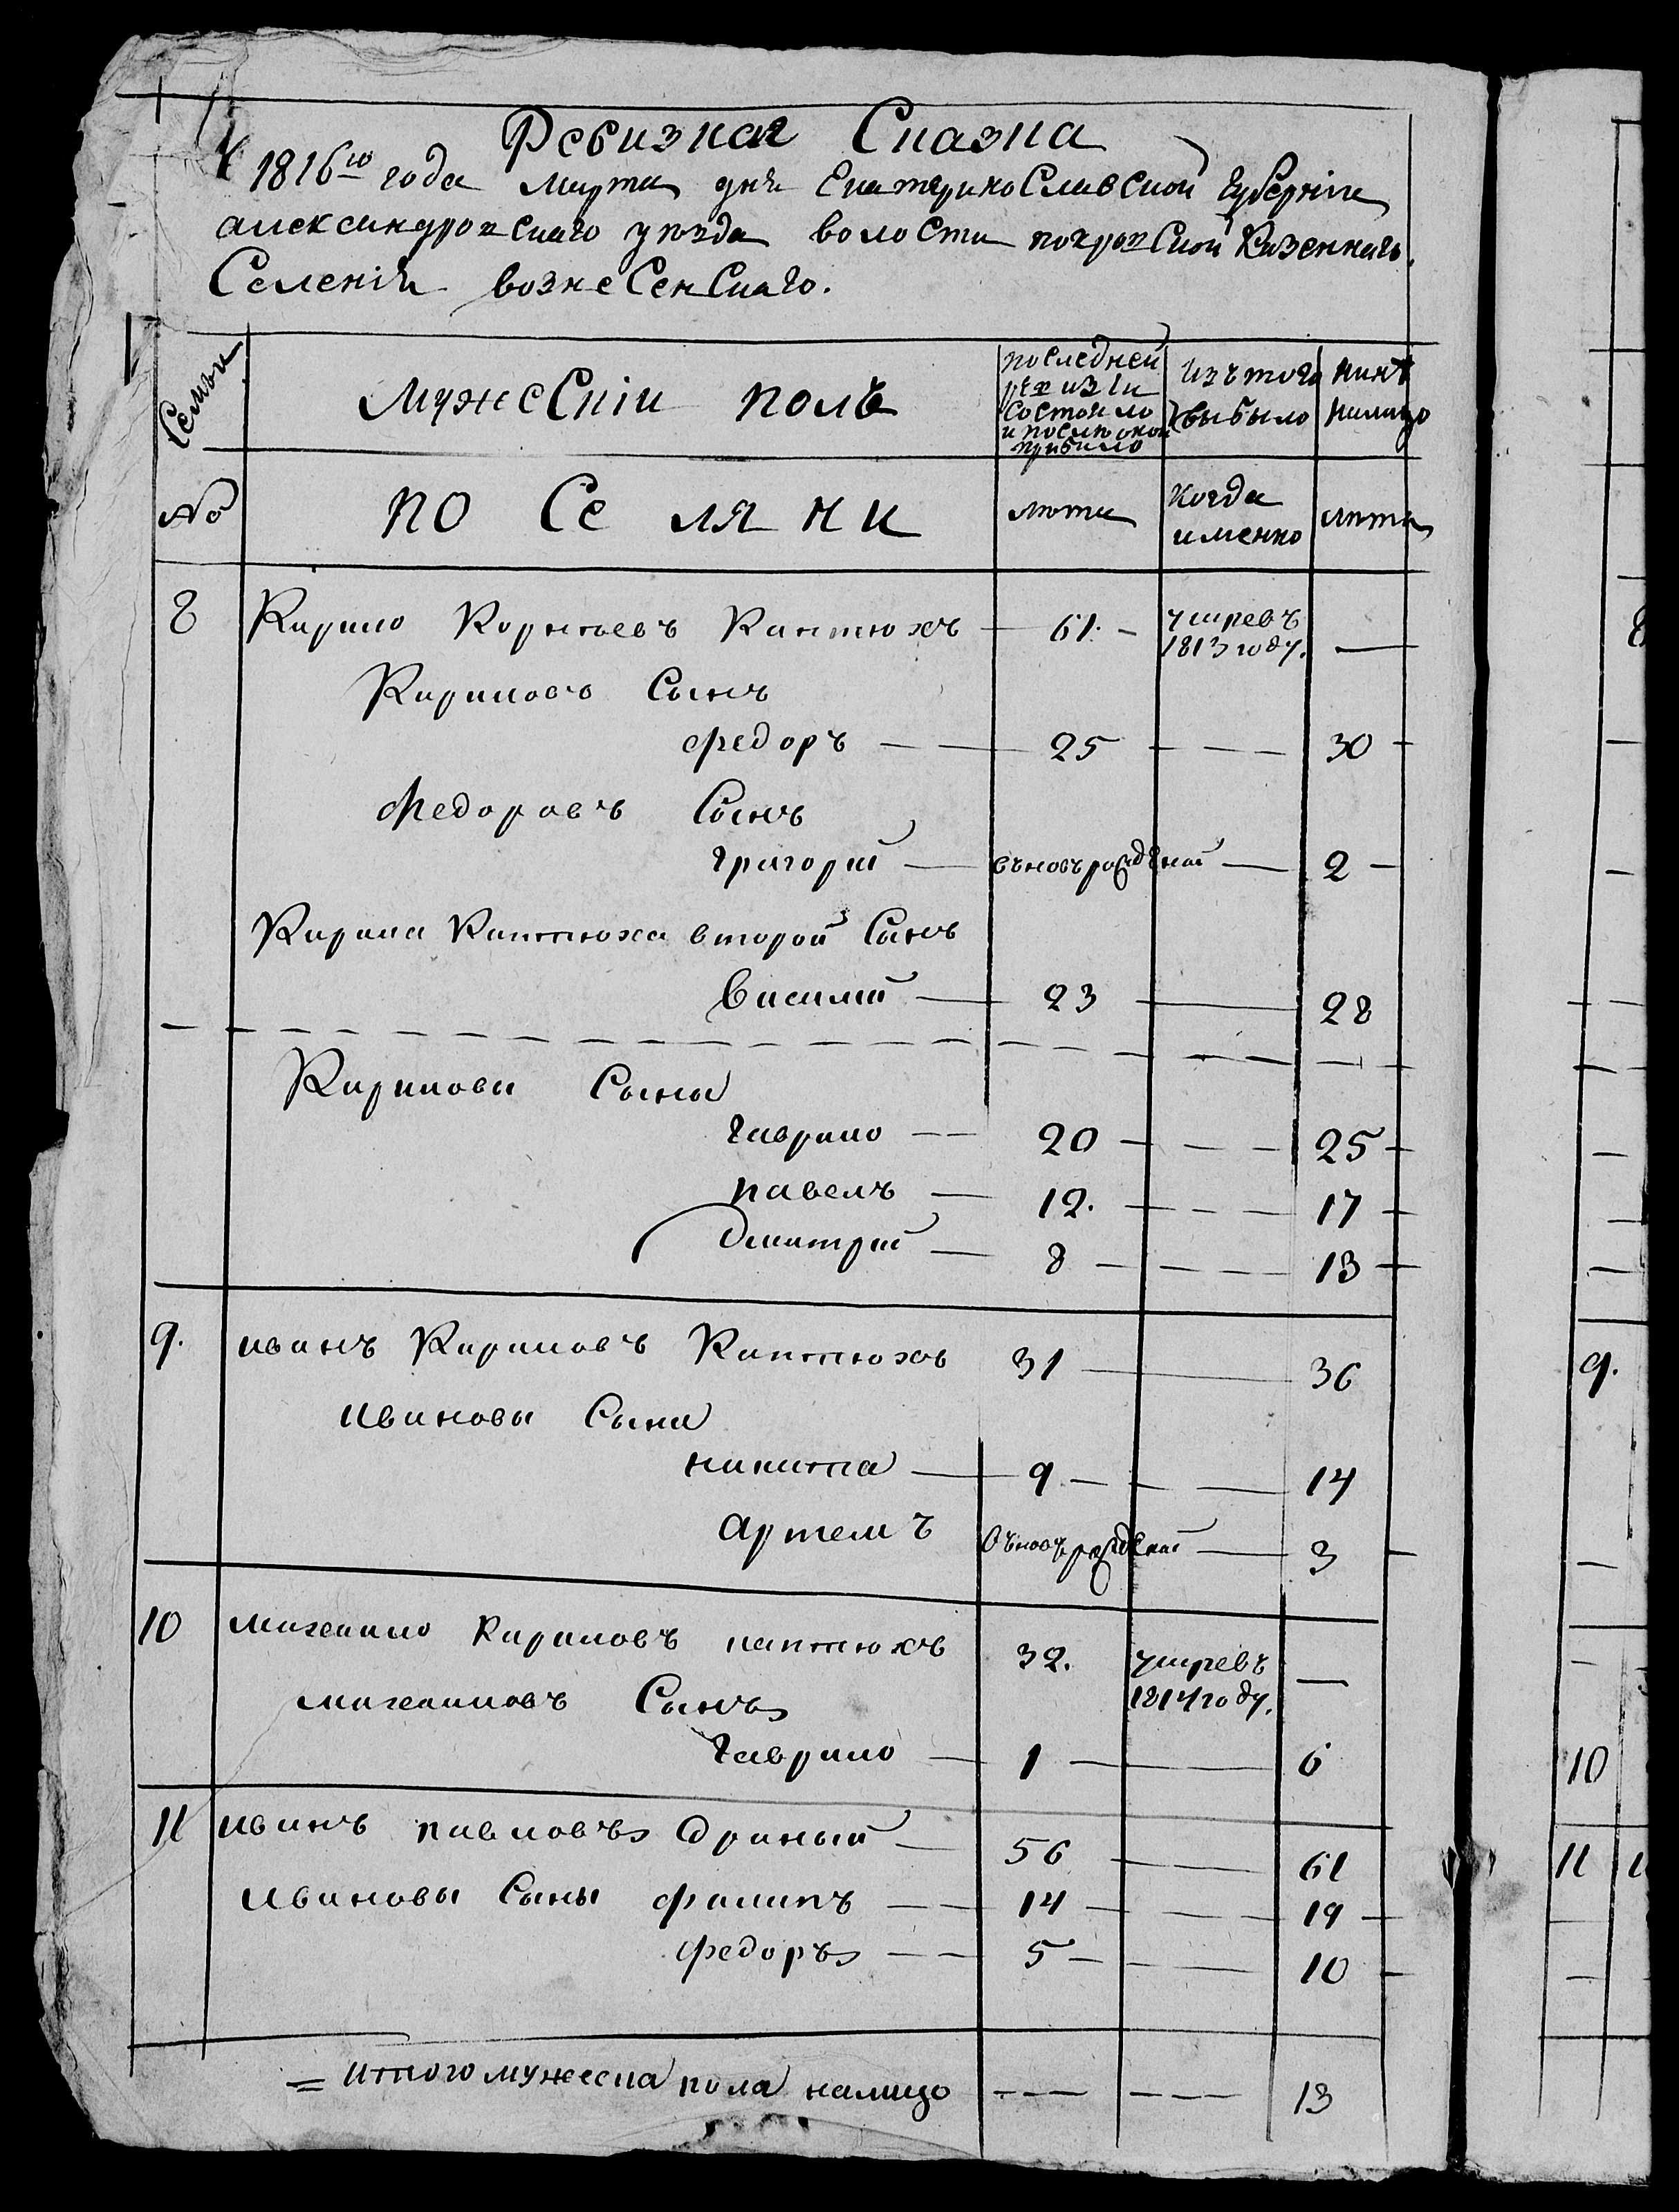 Ревизная Сказка
1816го года Марта дня Екатеринославской Губернiи
александровскаго уезда волости покровской Казеннаго
Селенiя вознесенскаго.
Семьи
Мужескiи полъ
последней ревизiи состояло и после оной прибыло
Изъ того выбыло
ныне налицо
№
ПОСеляни
лета
Когда именно
лета
8 Кирило Корнеевъ Каптюхъ — 61. — умревъ 1813 году. —
Кириловъ Сынъ
федоръ — — 25 — — — 30 —
Федоровъ Сынъ
григорий — въновърожденой — 2 —
Кирила Каптюха второй Сынъ
Василий — 23 — 28
Кириловы Сыны
гаврило — 20 — — — 25 —
павелъ — 12. — — — 17 —
дмитрий — 8 — — — 13 —
9. иванъ Кириловъ Каптюхъ 31 — 36
Ивановы Сыны
никита — 9 — — — 14
артемъ въновърожденой — 3 —
10 михаило Кириловъ каптюхъ 32. умревъ 1814 году. —
михаиловъ Сынъ
гаврило — 1 — 6
11 иванъ павловъ Дряный — 56 — — 61
Ивановы Сыны филипъ — — 14 — — — 19 —
федоръ — — 5 — — — 10 —
= итого мужеска пола налицо — — — — — 13
8
9.
10
11